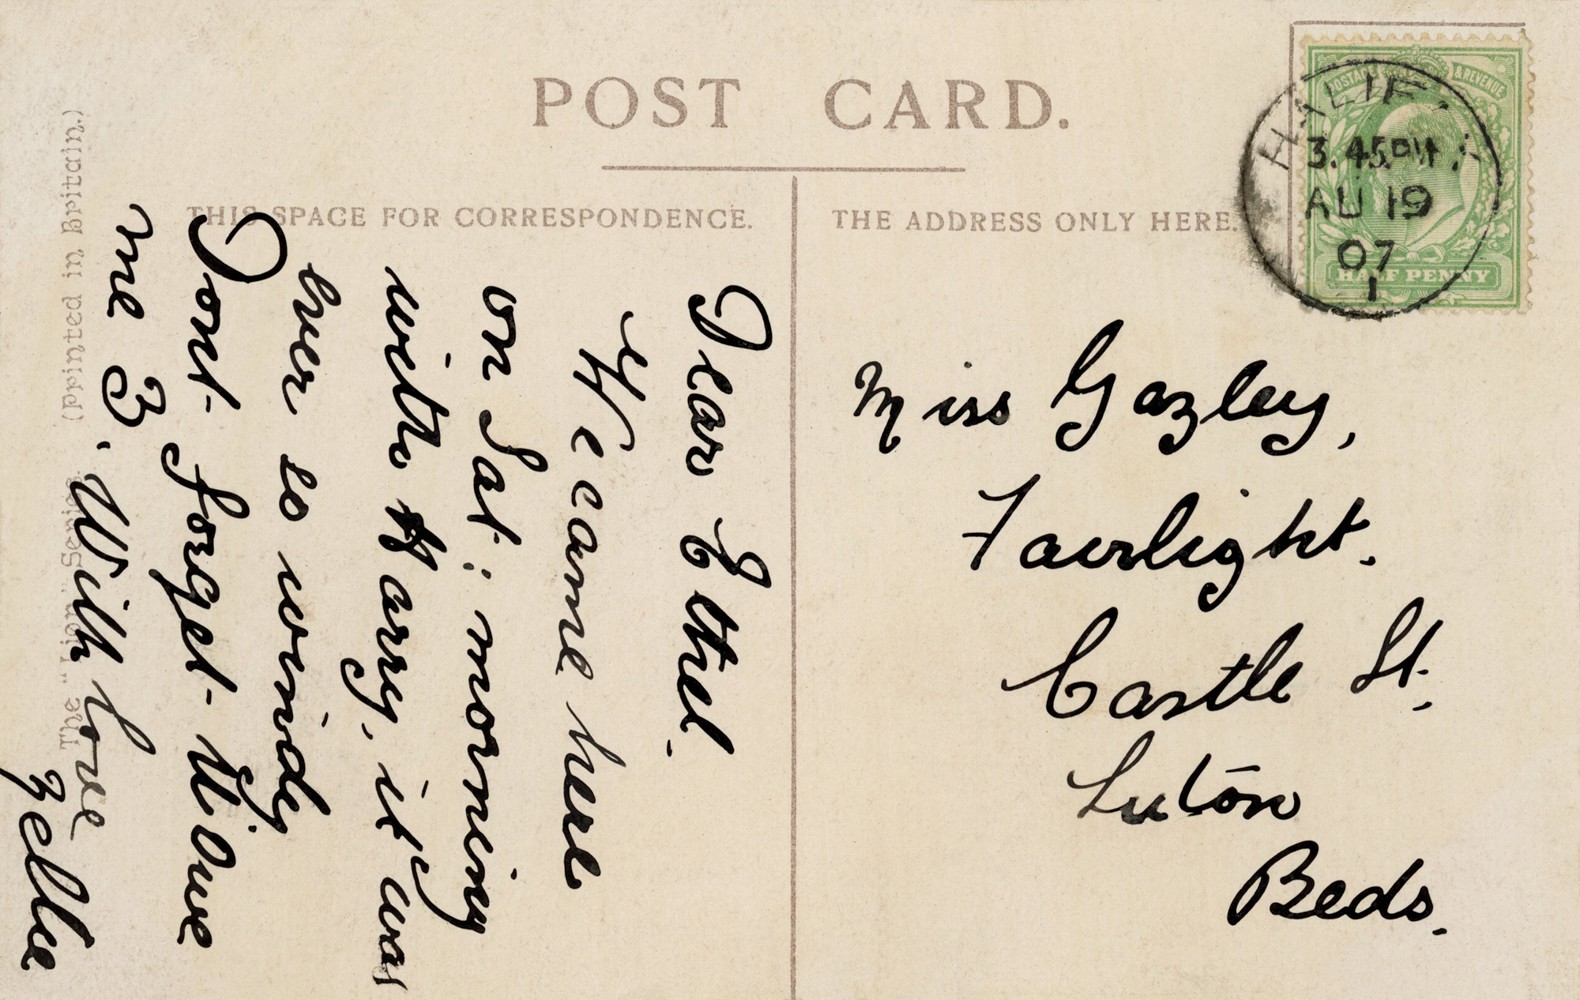 POST CARD.
THIS SPACE FOR CORRESPONDENCE.
THE ADDRESS ONLY HERE.
POSTAGE & REVENUE
HALF PENNY
3.45PM
AU 19
07
1
Dear Ethel.
We came here
on Sat: morning
with Harry, it was
ever so windy
Dont forget U owe
me 3. With love
Zellie
Miss Gazley,
Fairlight.
Castle St.
Luton
Beds.
The "Lion" Series (Printed in Britain.)